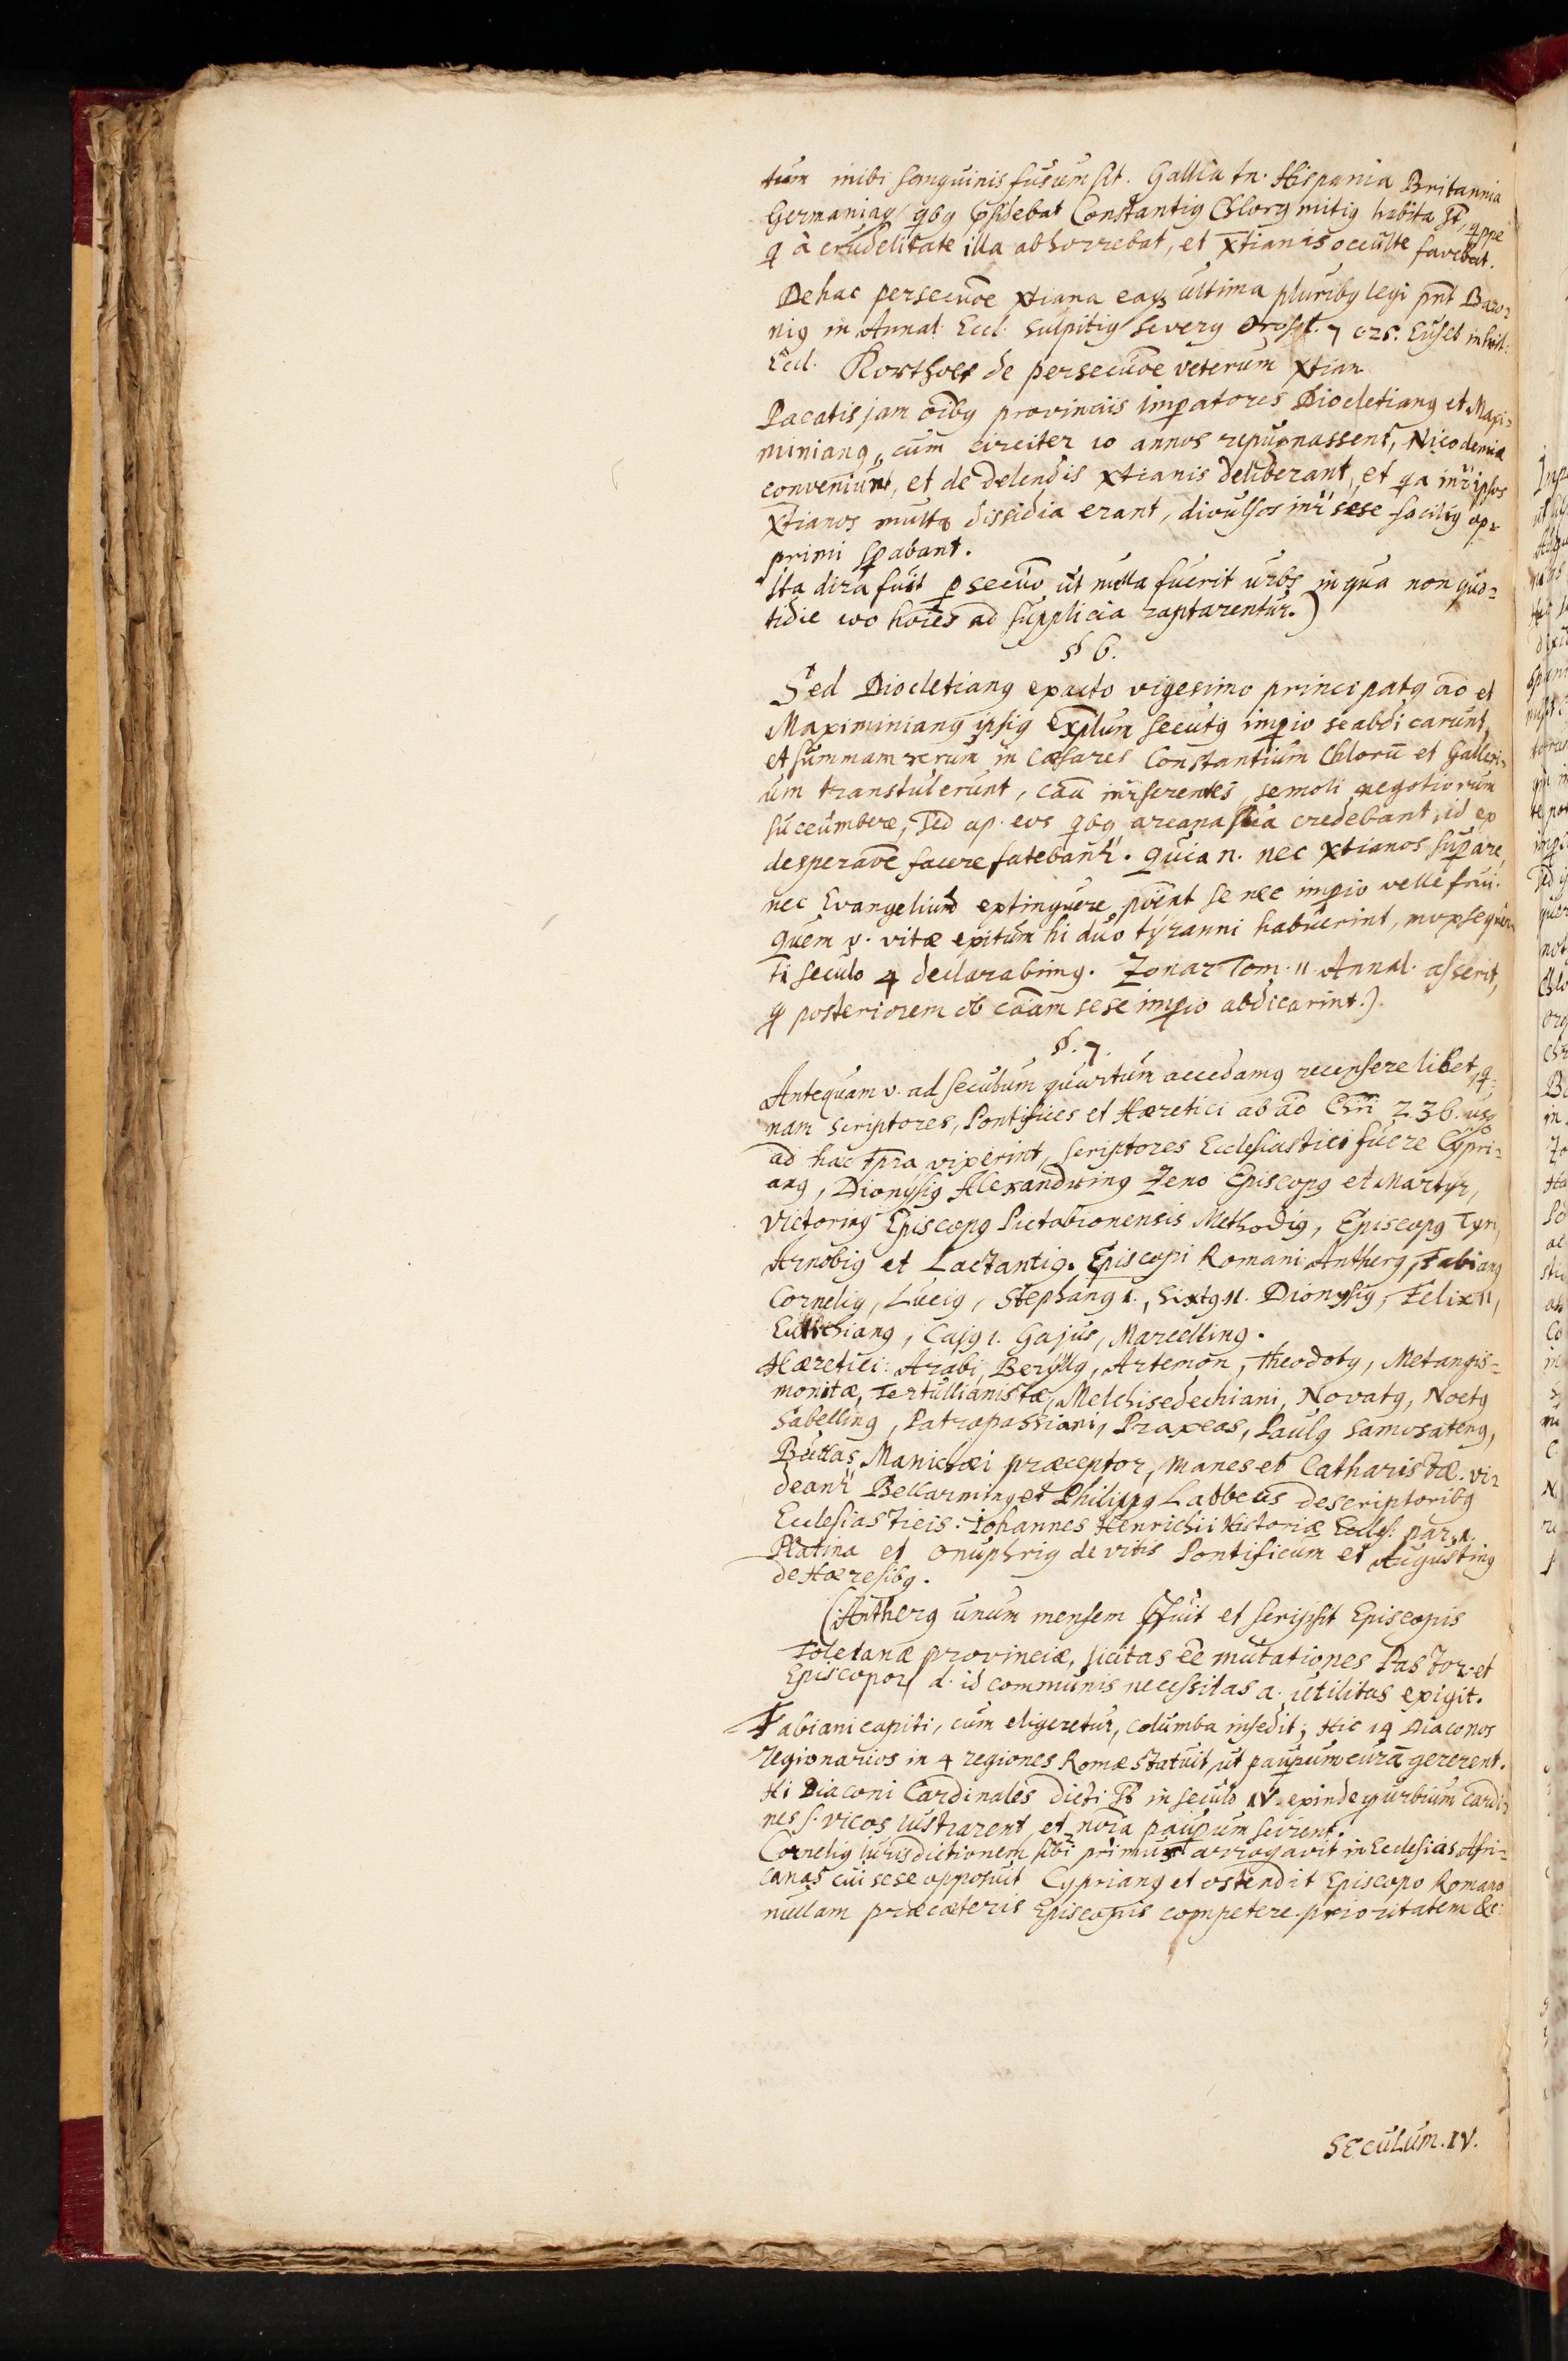 tum inibi sanguinis fusum sit. Gallia tn. Hispania Britannia
Germaniaq qbq Constantiq Chlorq mitiq habita st, qppe
q à crudelitate illa abhorrebat, et Xtianis occulte favebat.
De hac persecuõe Xtiana ultima pluribq legi pñt Baro=
niq in Annal. Eccl. Sulpitiq Severq Oros. l. 7 c. 25. Euseb in hist:
Eccl. Kortholt de persecuõe veterum Xtian
Pacatis jam oibq provinciis Impatores Diocletianq et Maxi=
minianq, cum circiter 10 annos repugnassent, Nicodemiæ
conveniunt, et de delendis Xtianis deliberant, et qa inr ipsos
Xtianos multa dissidia erant, divulsos inr sese faciliq op=
primi spabant.
Ita dira fuit psecuõ ut nulla fuerit urbs in qua non quo=
tidie 100 hoies ad supplicia raptarentur.)
§ 6.
Sed Diocletianq exacto vigesimo principatq ão et
Maximinianq ipsiq explum secutq impio se abdicarunt,
et summam rerum in Cæsares Constantium Chlorũ et Galleri=
um transtulerunt, cãa inr ferentes, se moli negotiorum
succumbere, Sed ap. eos qbq arcana sua credebant, id ex
desperaõe facere fatebantr. Quia n. nec Xtianos supare,
nec Evangelium extinguere point se nec impio velle frui.
Quem v. vitæ exitum hi duo tyranni habuerint, mox sequen=
ti seculo 4 declarabimq. Zonar Tom. 11 Annal. asserit,
q posteriorem ob cãam sese impio abdicarint.)
§. 7.
Antequam v. ad seculum quartum accedamq recensere libet, q=
nam scriptores, Pontifices et Hæretici ab ão Chri 236. usq
ad hæc tpra vixerint, scriptores Ecclesiastici fuere Cypri=
anq, Dionysiq Alexandrinq Zeno Episcopq et Martyr,
Victorinq Episcopq Pictabionensis Methodiq, Episcopq Tyri,
Arnobiq et Lactantiq. Episcopi Romani Antherq, Fabianq
Corneliq, Luciq, Stephanq 1., Sixtq II. Dionysiq, Felix II,
Eutichianq, Cajq 1. Gajus, Marcellinq.
Hæretici: Arabi, Beryllq, Artemon, Theodotq, Metangis=
monitæ, Tertullianistæ, Melchisedechiani, Novatq, Noetq
Sabellinq, Patropassiani, Praxeas, Paulq Samosatenq,
Buttas Manichæi præceptor, Manes et Catharistæ. vi=
deantr Bellarminq et Philippq Labbeus de scriptoribq
Ecclesiasticis. Johannes Henrichii Historiæ Eccles: par. 1.
Platina et Onuphriq de vitis Pontificum et Augustinq
de Hæresibq.
(Antherq unum mensem et scripsit Episcopis
Toletanæ provinciæ, licitas ẽe mutationes Pastor. et
Episcopor, d. id communis necessitas a. utilitas exigit.
Fabiani capiti, cum eligeretur, columba insedit; Hic 14 Diaconos
regionarios in 4 regiones Romæ statuit, ut paupum curã gererent.
Hi Diaconi Cardinales dicti st in seculo IV. exinde q urbium cardi=
nes s. vicos lustrarent, et noia paupum scirent.
Corneliq Jurisdictionem sibi primus arrogavit in Ecclesias Afri=
canas cui sese opposuit Cyprianq et ostendit Episcopo Romano
nullam præ cæteris Episcopis competere prioritatem &c:
SECULUM. IV.